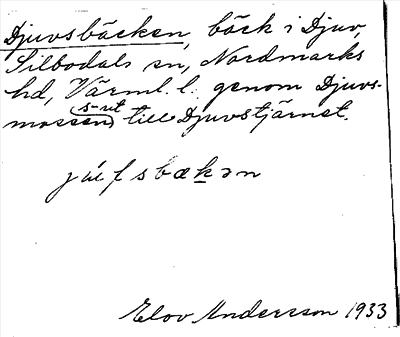 Djuvsbäcken, bäck i Djuv,
Silbodals sn, Nordmarks
hd, Värml. l. genom Djuvs-
s-ut
mossen till Djuvstjärnet.
Elov Andersson 1933